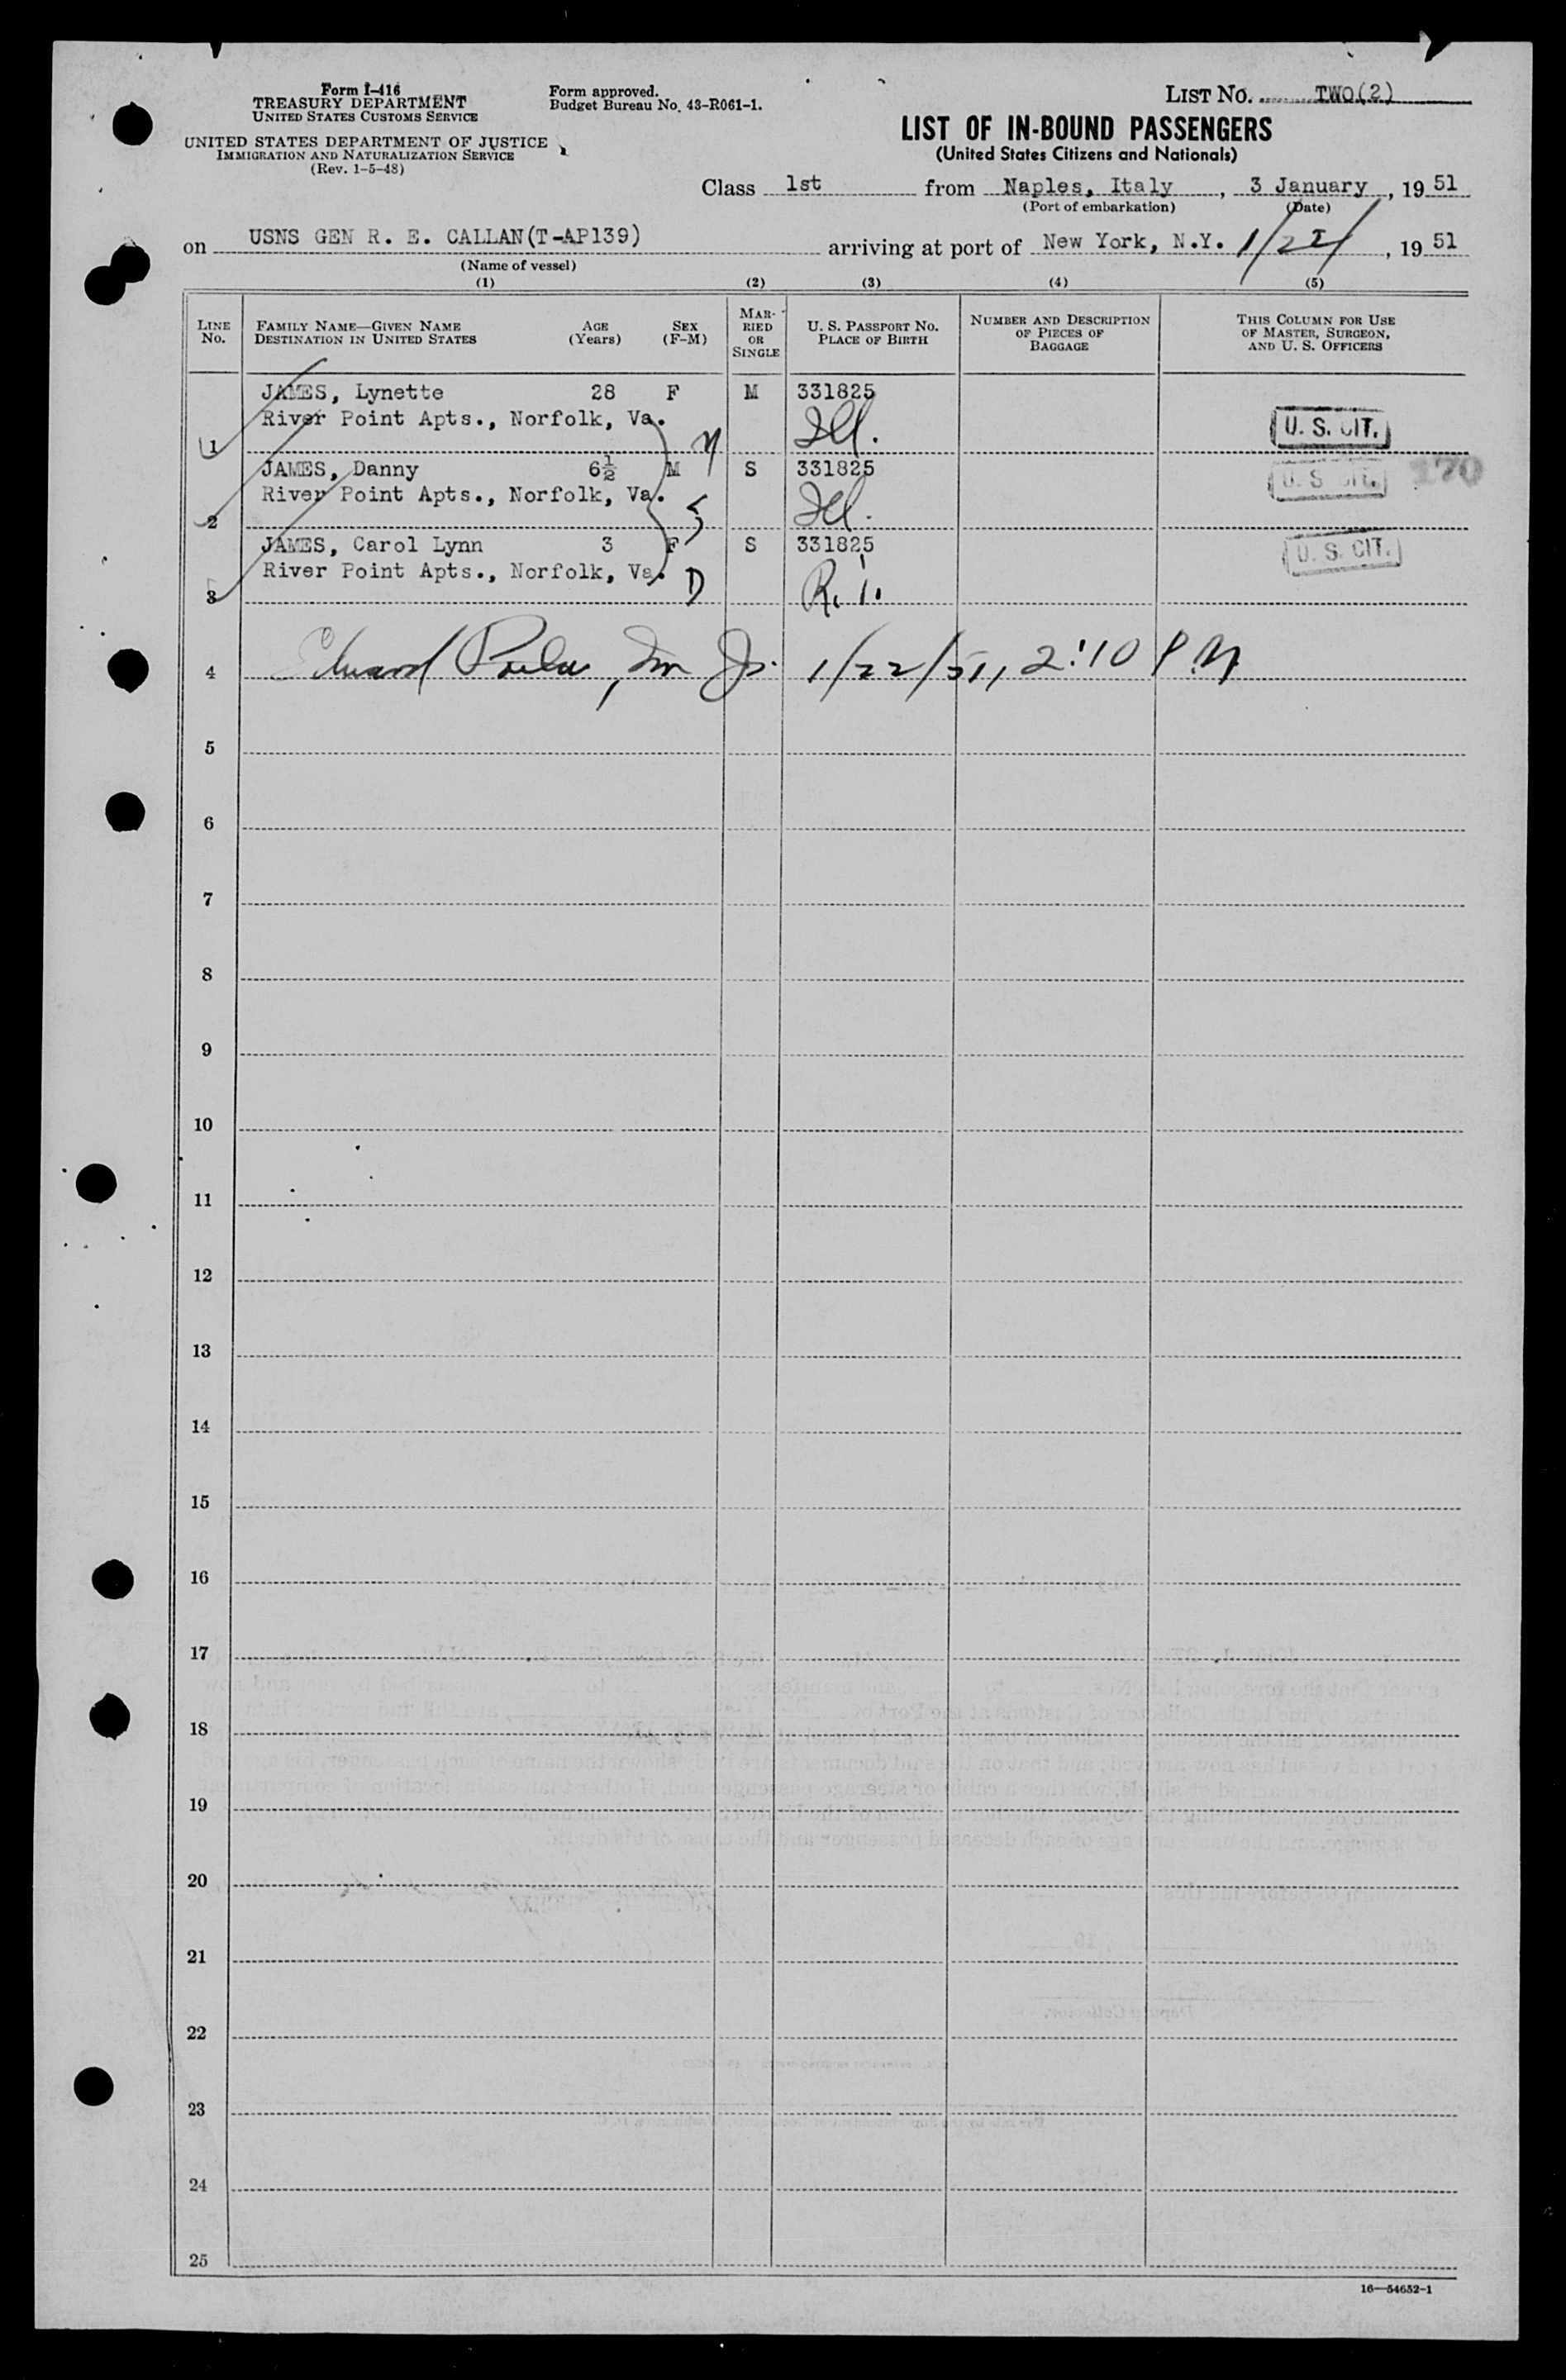 Form I-416
TREASURY DEPARTMENT
UNITED STATES CUSTOMS SERVICE
UNITED STATES DEPARTMENT OF JUSTICE
IMMIGRATION AND NATURALIZATION SERVICE
(Rev. 1-5-48)
Form approved.
Budget Bureau No. 43-R061-1.
LIST NO. TWO(2)
LIST OF IN-BOUND PASSENGERS
(United States Citizens and Nationals)
Class 1st from Naples, Italy, 3 January, 19 51
(Port of embarkation) (Date)
on USNS GEN R. E. CALLAN(T-AP139) arriving at port of New York, N.Y. 1/22/, 19 51
(Name of vessel)
(1) (2) (3) (4) (5)
LINE NO.
FAMILY NAME—GIVEN NAME
DESTINATION IN UNITED STATES
AGE (Years)
SEX (F-M)
MARRIED OR SINGLE
U. S. PASSPORT NO.
PLACE OF BIRTH
NUMBER AND DESCRIPTION
OF PIECES OF
BAGGAGE
THIS COLUMN FOR USE
OF MASTER, SURGEON,
AND U. S. OFFICERS
JAMES, Lynette 28 F M 331825
River Point Apts., Norfolk, Va. Ill. U. S. CIT.
1
JAMES, Danny 6½ M S 331825
River Point Apts., Norfolk, Va. Ill. U. S. CIT. 170
2
JAMES, Carol Lynn 3 F S 331825
River Point Apts., Norfolk, Va. R.I. U. S. CIT.
3
N
S
D
4 Edward 1/22/51, 2:10 PM
5
6
7
8
9
10
11
12
13
14
15
16
17
18
19
20
21
22
23
24
25
16—54652-1